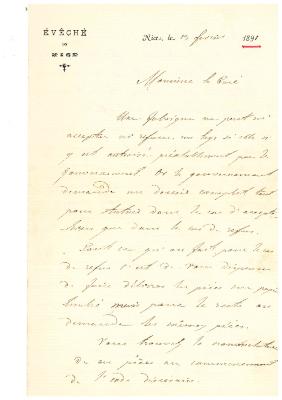 ÉVÊCHÉ
DE
NICE
Nice, le 13 février 1891
Monsieur le Curé
Une fabrique ne peut ni
accepter ni refuser un legs si elle n'
y est autorisée préalablement par le
Gouvernement. Or le gouvernement
demande un dossier complet tout
aussi bien dans le cas d'accepta
que dans le cas de refus.
Tout ce qu'on fait pour le cas
de refus c'est de vous dispenser
de faire délivrer les pièces sur papier
timbré mais pour le reste on
demande les mêmes pièces.
Vous trouverez la nomenclature
de ces pièces au commencement
de l'ordo diocésain.